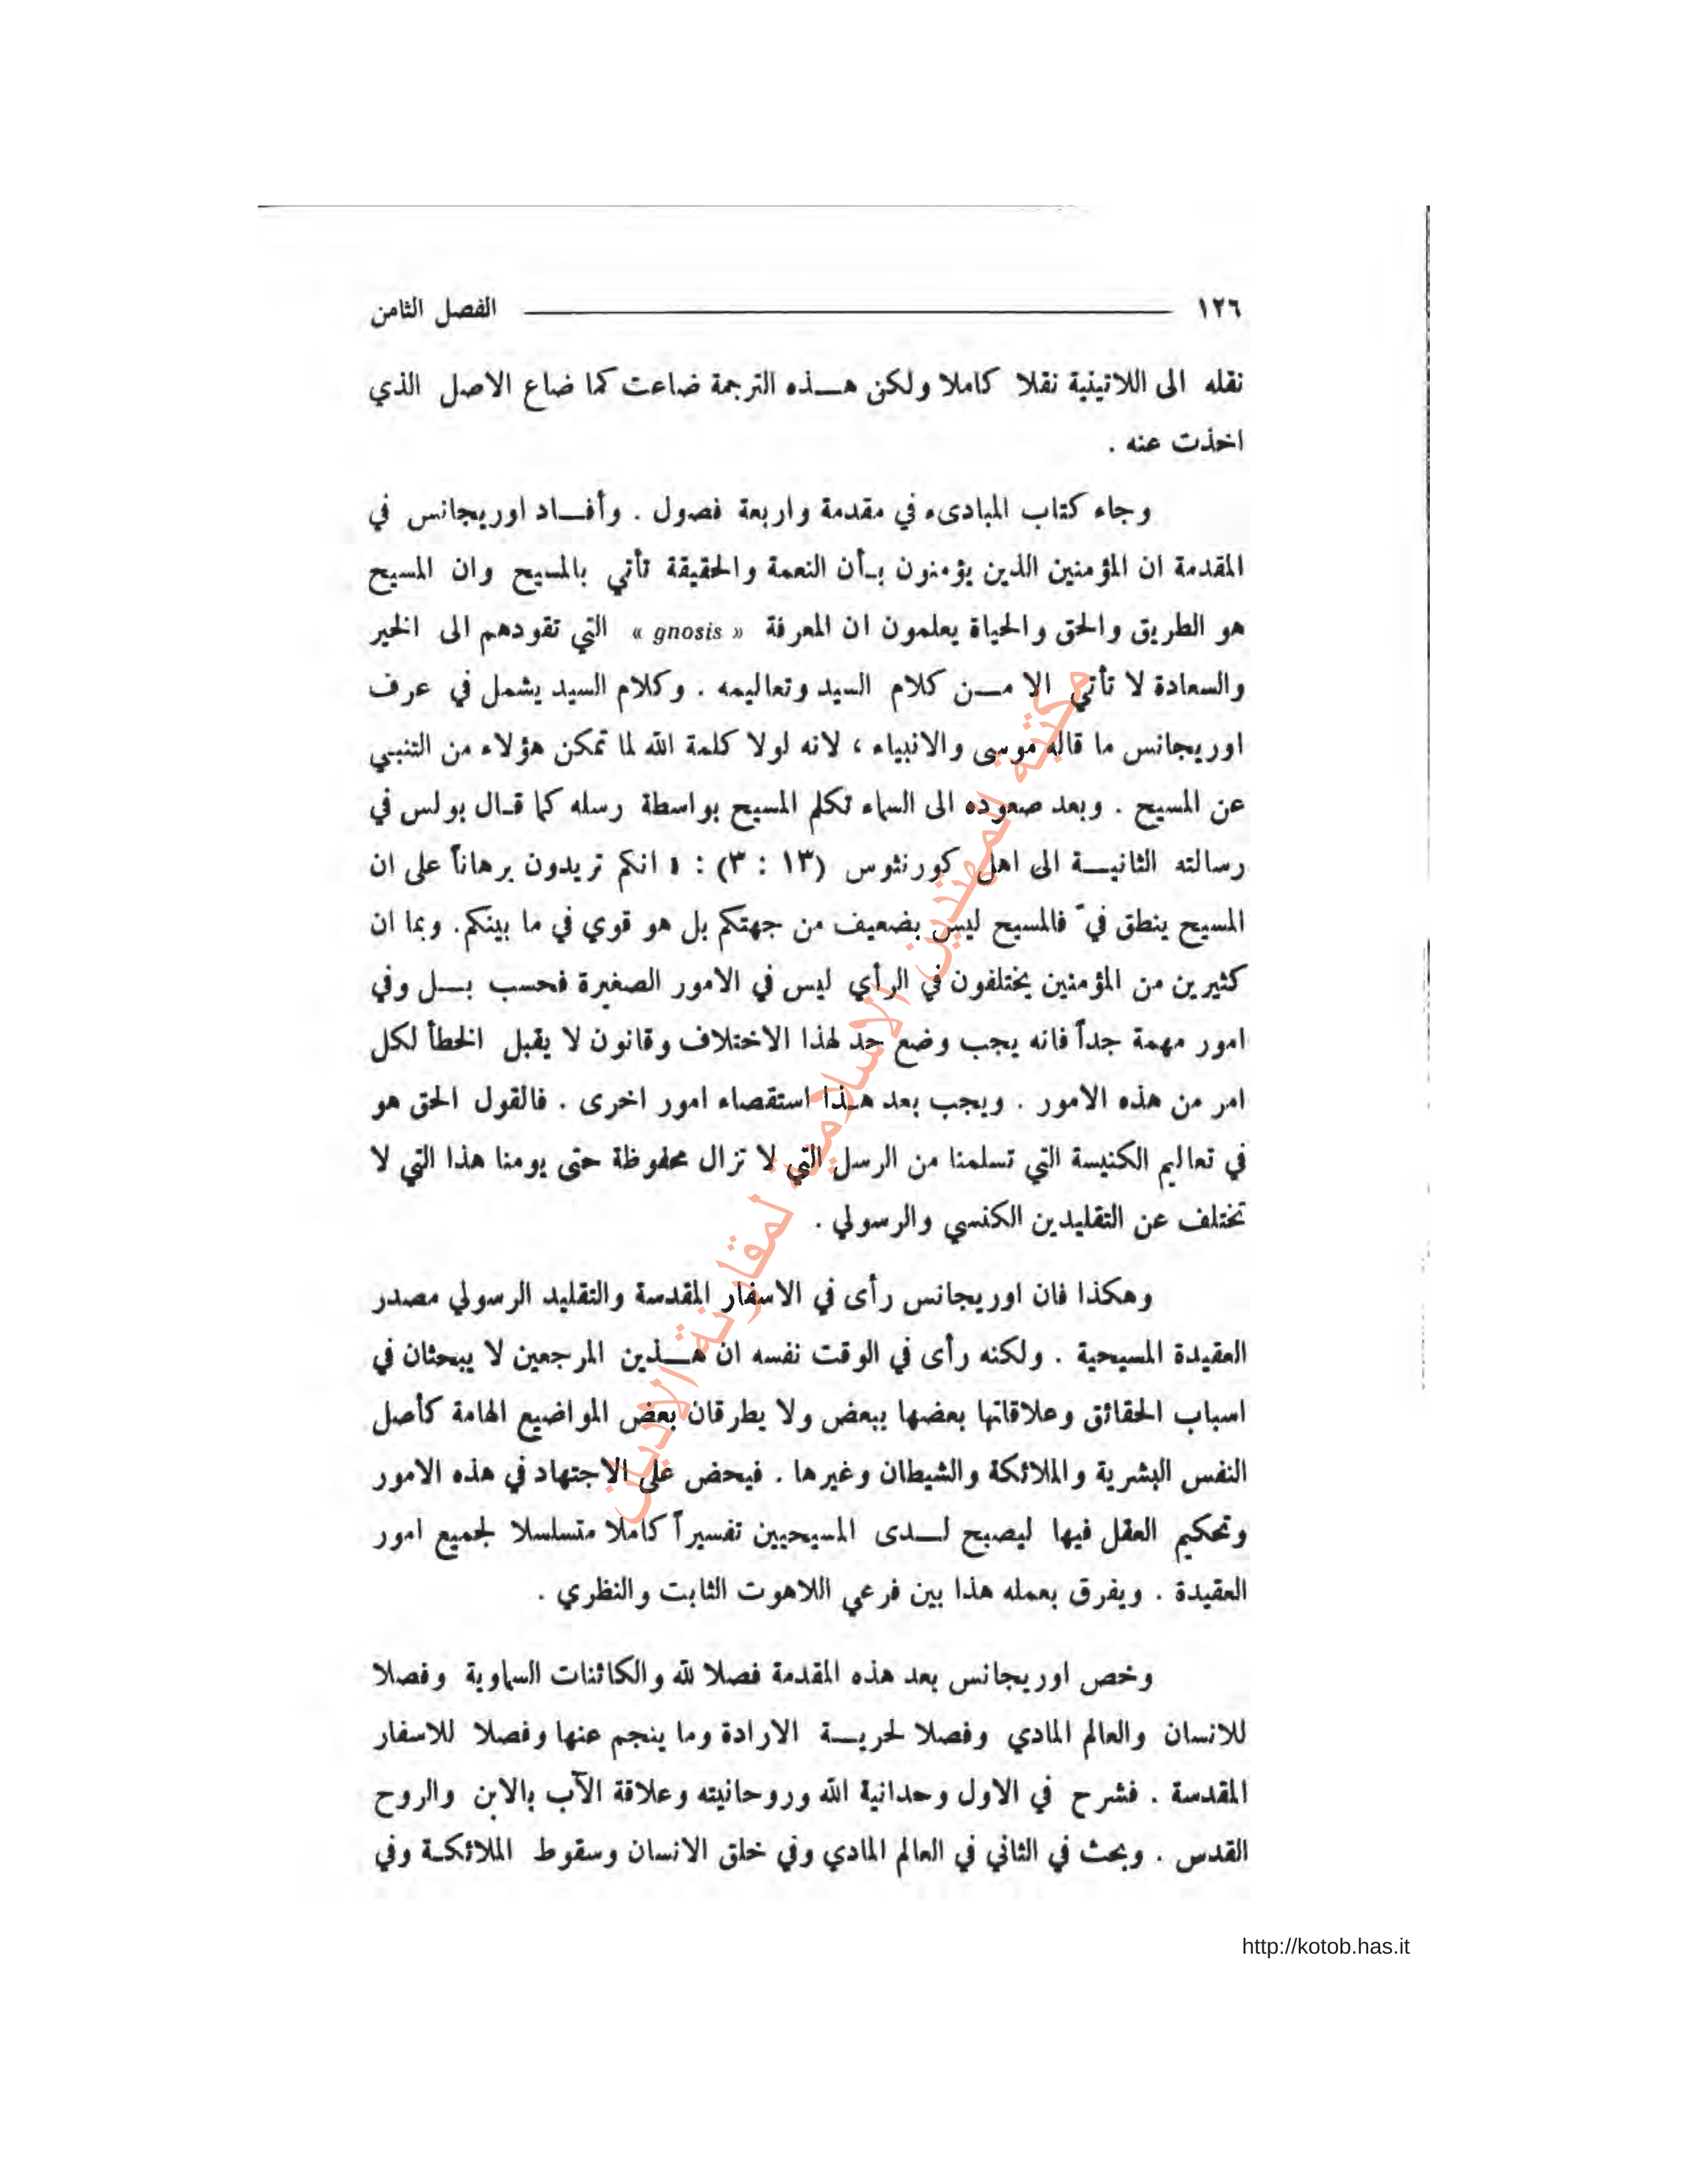 ١٢٦ الفصل الثامن
نقله الى اللاتينية نقلا كاملا ولكن هـــذه الترجمة ضاعت كما ضاع الاصل الذي
اخذت عنه .
وجاء كتاب المبادىء في مقدمة واربعة فصول . وأفـــاد اوريجانس في
المقدمة ان المؤمنين الذين يؤمنون بـأن النعمة والحقيقة تأتي بالمسيح وان المسيح
هو الطريق والحق والحياة يعلمون ان المعرفة « gnosis » التي تقودهم الى الخير
والسعادة لا تأتي الا مـــن كلام السيد وتعاليمه . وكلام السيد يشمل في عرف
اوريجانس ما قاله موسى والانبياء ، لانه لولا كلمة الله لما تمكن هؤلاء من التنبي
عن المسيح . وبعد صعوده الى السماء تكلم المسيح بواسطة رسله كما قـال بولس في
رسالته الثانيـــة الى اهل كورنثوس (١٣ : ٣) : « انكم تريدون برهاناً على ان
المسيح ينطق فيّ فالمسيح ليس بضعيف من جهتكم بل هو قوي في ما بينكم. وبما ان
كثيرين من المؤمنين يختلفون في الرأي ليس في الامور الصغيرة فحسب بـــل وفي
امور مهمة جداً فانه يجب وضع حد لهذا الاختلاف وقانون لا يقبل الخطأ لكل
امر من هذه الامور . ويجب بعد هـذا استقصاء امور اخرى . فالقول الحق هو
في تعاليم الكنيسة التي تسلمنا من الرسل التي لا تزال محفوظة حتى يومنا هذا التي لا
تختلف عن التقليدين الكنسي والرسولي .
وهكذا فان اوريجانس رأى في الاسفار المقدسة والتقليد الرسولي مصدر
العقيدة المسيحية . ولكنه رأى في الوقت نفسه ان هـــذين المرجعين لا يبحثان في
اسباب الحقائق وعلاقاتها بعضها ببعض ولا يطرقان بعض المواضيع الهامة كأصل
النفس البشرية والملائكة والشيطان وغيرها . فيحض على الاجتهاد في هذه الامور
وتحكيم العقل فيها ليصبح لـــدى المسيحيين تفسيراً كاملا متسلسلا لجميع امور
العقيدة . ويفرق بعمله هذا بين فرعي اللاهوت الثابت والنظري .
وخص اوريجانس بعد هذه المقدمة فصلا لله والكائنات السماوية وفصلا
للانسان والعالم المادي وفصلا لحريـــة الارادة وما ينجم عنها وفصلا للاسفار
المقدسة . فشرح في الاول وحدانية الله وروحانيته وعلاقة الآب بالابن والروح
القدس . وبحث في الثاني في العالم المادي وفي خلق الانسان وسقوط الملائكـة وفي
مكتبة المهتدين الاسلامية لمقارنة الاديان
http://kotob.has.it